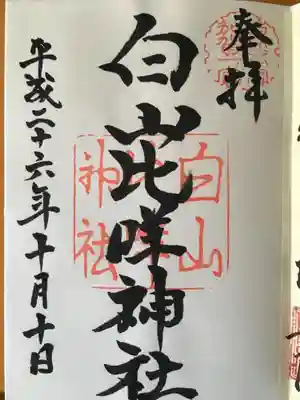 奉拝
白山比咩神社
平成二十六年十月十日